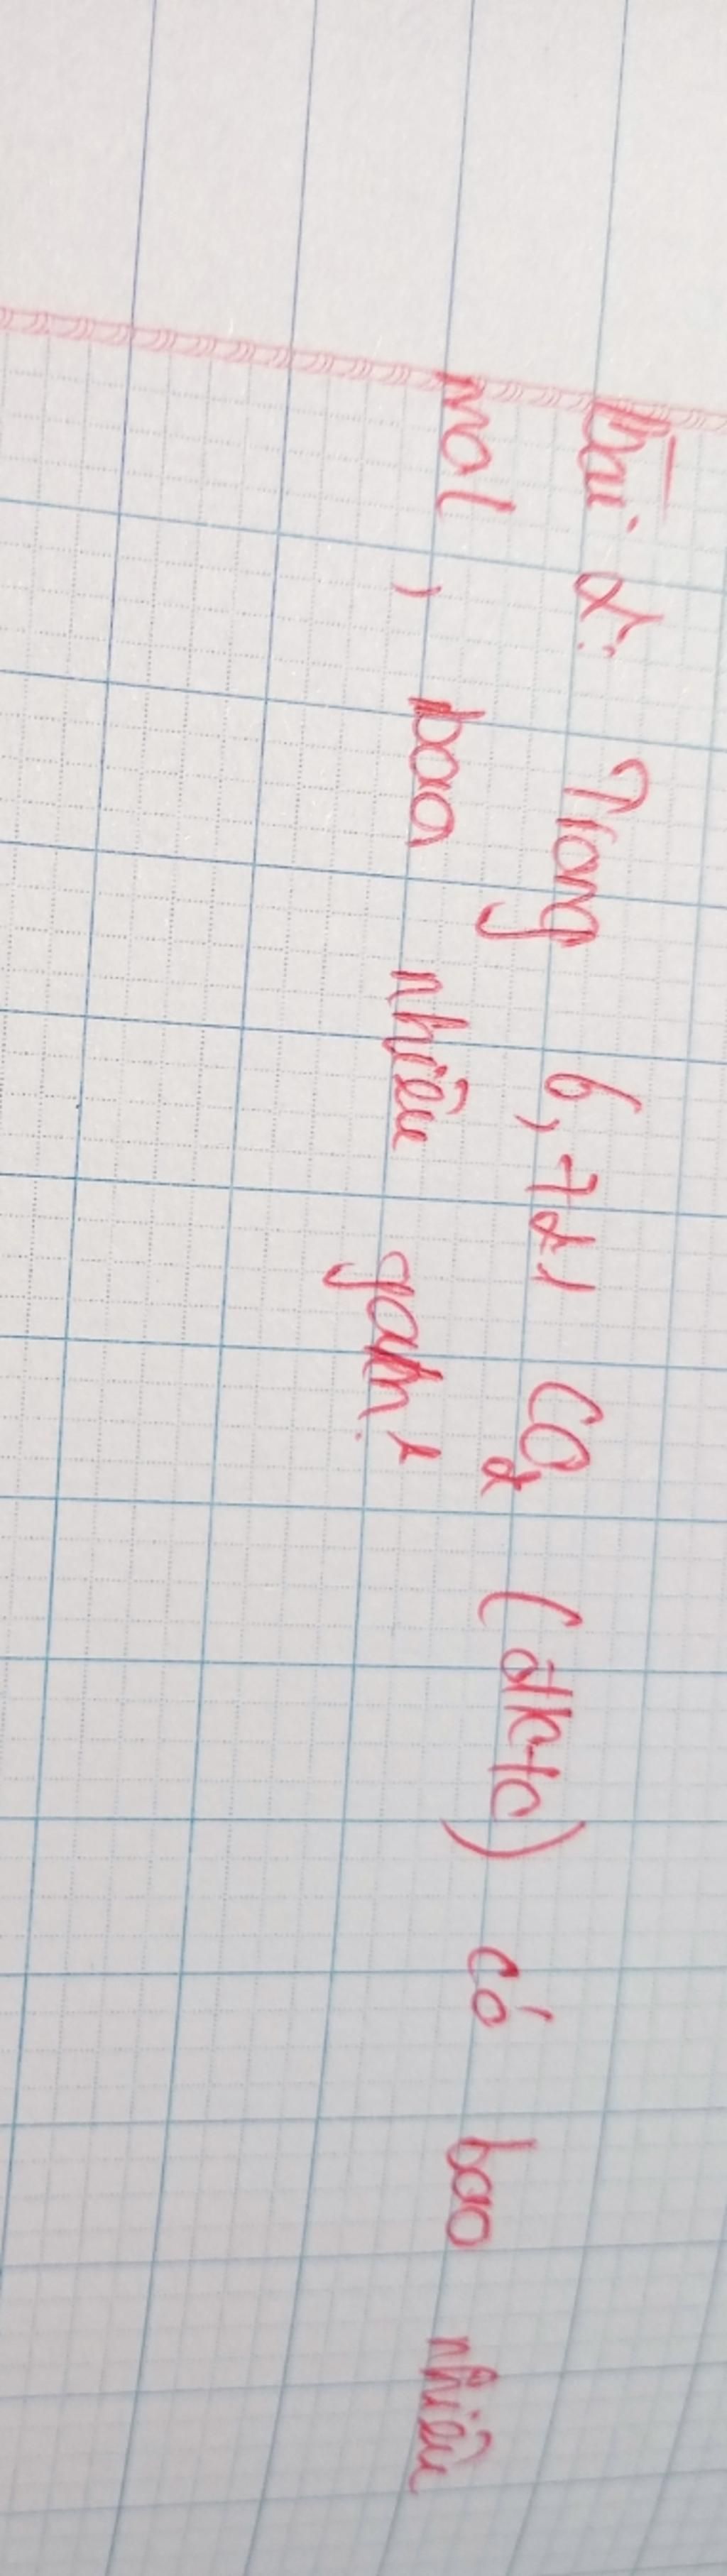 Bài 2: Trong 6,72l CO2 (đktc) có bao nhiêu
mol, bao nhiêu gam?